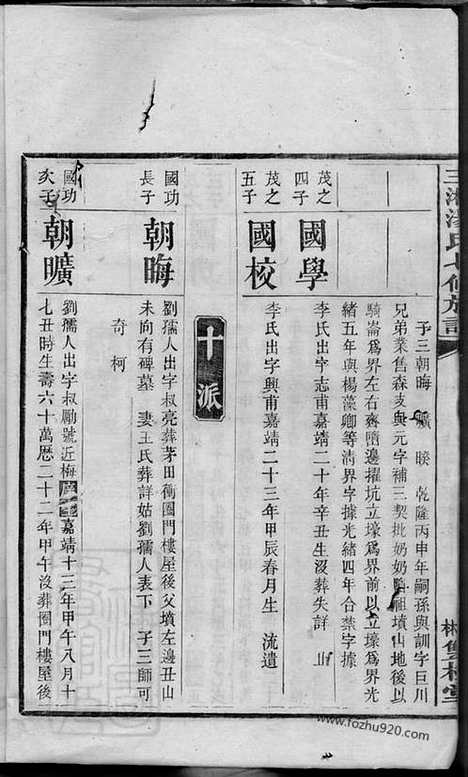 子三朝晦 曠 暌 乾隆丙申年嗣孫與訓字巨川
兄弟業舊森支與元字補三契批奶奶 祖墳山地後以
騎崙為界左右齊牆邊擢坑立壕為界前以立壕為界光
緒五年與楊藻卿等清界字據光緒四年合禁字據
茂之四子
國學
李氏出字志甫嘉靖二十年辛丑生沒葬失詳
茂之五子
國校
李氏出字興甫嘉靖二十三年甲辰春月生 流遺
十派
國功長子
朝晦
劉孺人出字叔亮葬茅田衝圈門樓屋後父墳左邊丑山
未向有碑墓 妻王氏葬詳姑劉孺人表下 子三師可
奇 柯
國功次子
朝曠
劉孺人出字叔勵號近梅 嘉靖十三年甲午八月十
七丑時生壽六十萬歷二十二年甲午沒葬圈門樓屋後
www.fozhu920.com